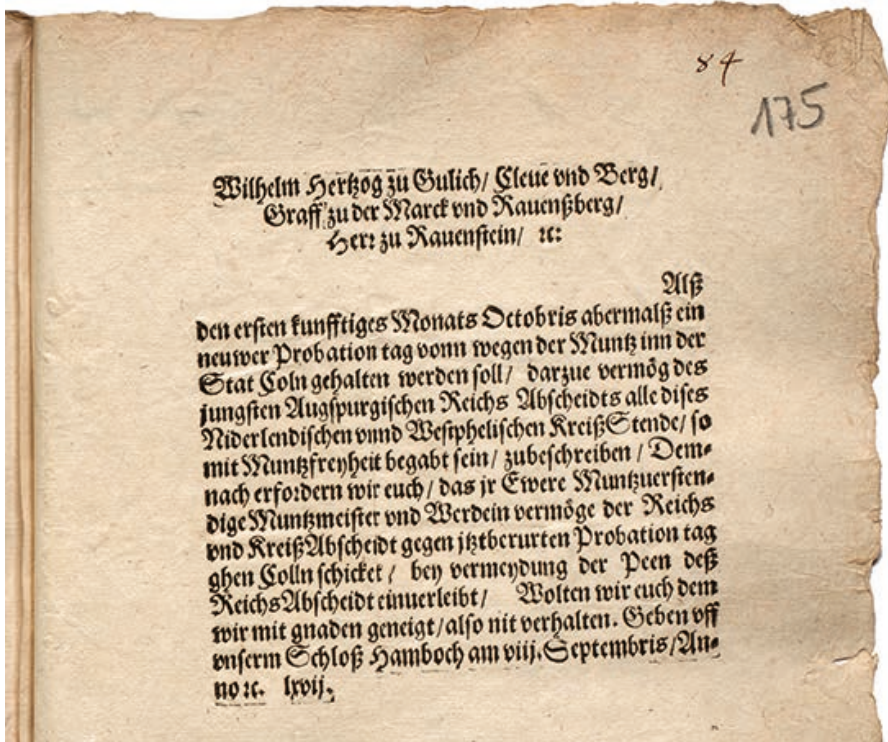 84
175
Wilhelm Hertzog zu Gulich/ Cleue vnd Berg/
Graff zu der Marck vnd Rauenßberg/
Herr zu Rauenstein/ ꝛc:
Alß
den ersten kunfftiges Monats Octobris abermalß ein
neuwer Probation tag vonn wegen der Muntz inn der
Stat Coln gehalten werden soll/ darzue vermög des
jungsten Augspurgischen Reichs Abscheidts alle dises
Niderlendischen vnnd Westphelischen KreißStende/ so
mit Muntzfreyheit begabt sein/ zubeschreiben/ Dem-
nach erfordern wir euch/ das jr Ewere Muntzuersten-
dige Muntzmeister vnd Werdein vermöge der Reichs
vnd KreißAbscheidt gegen jtztberurten Probation tag
ghen Colln schicket/ bey vermeydung der Peen deß
ReichsAbscheidt einuerleibt/ Wolten wir euch dem
wir mit gnaden geneigt/ also nit verhalten. Geben vff
vnserm Schloß Hamboch am viij. Septembris/ An-
no ꝛc. lxvij.